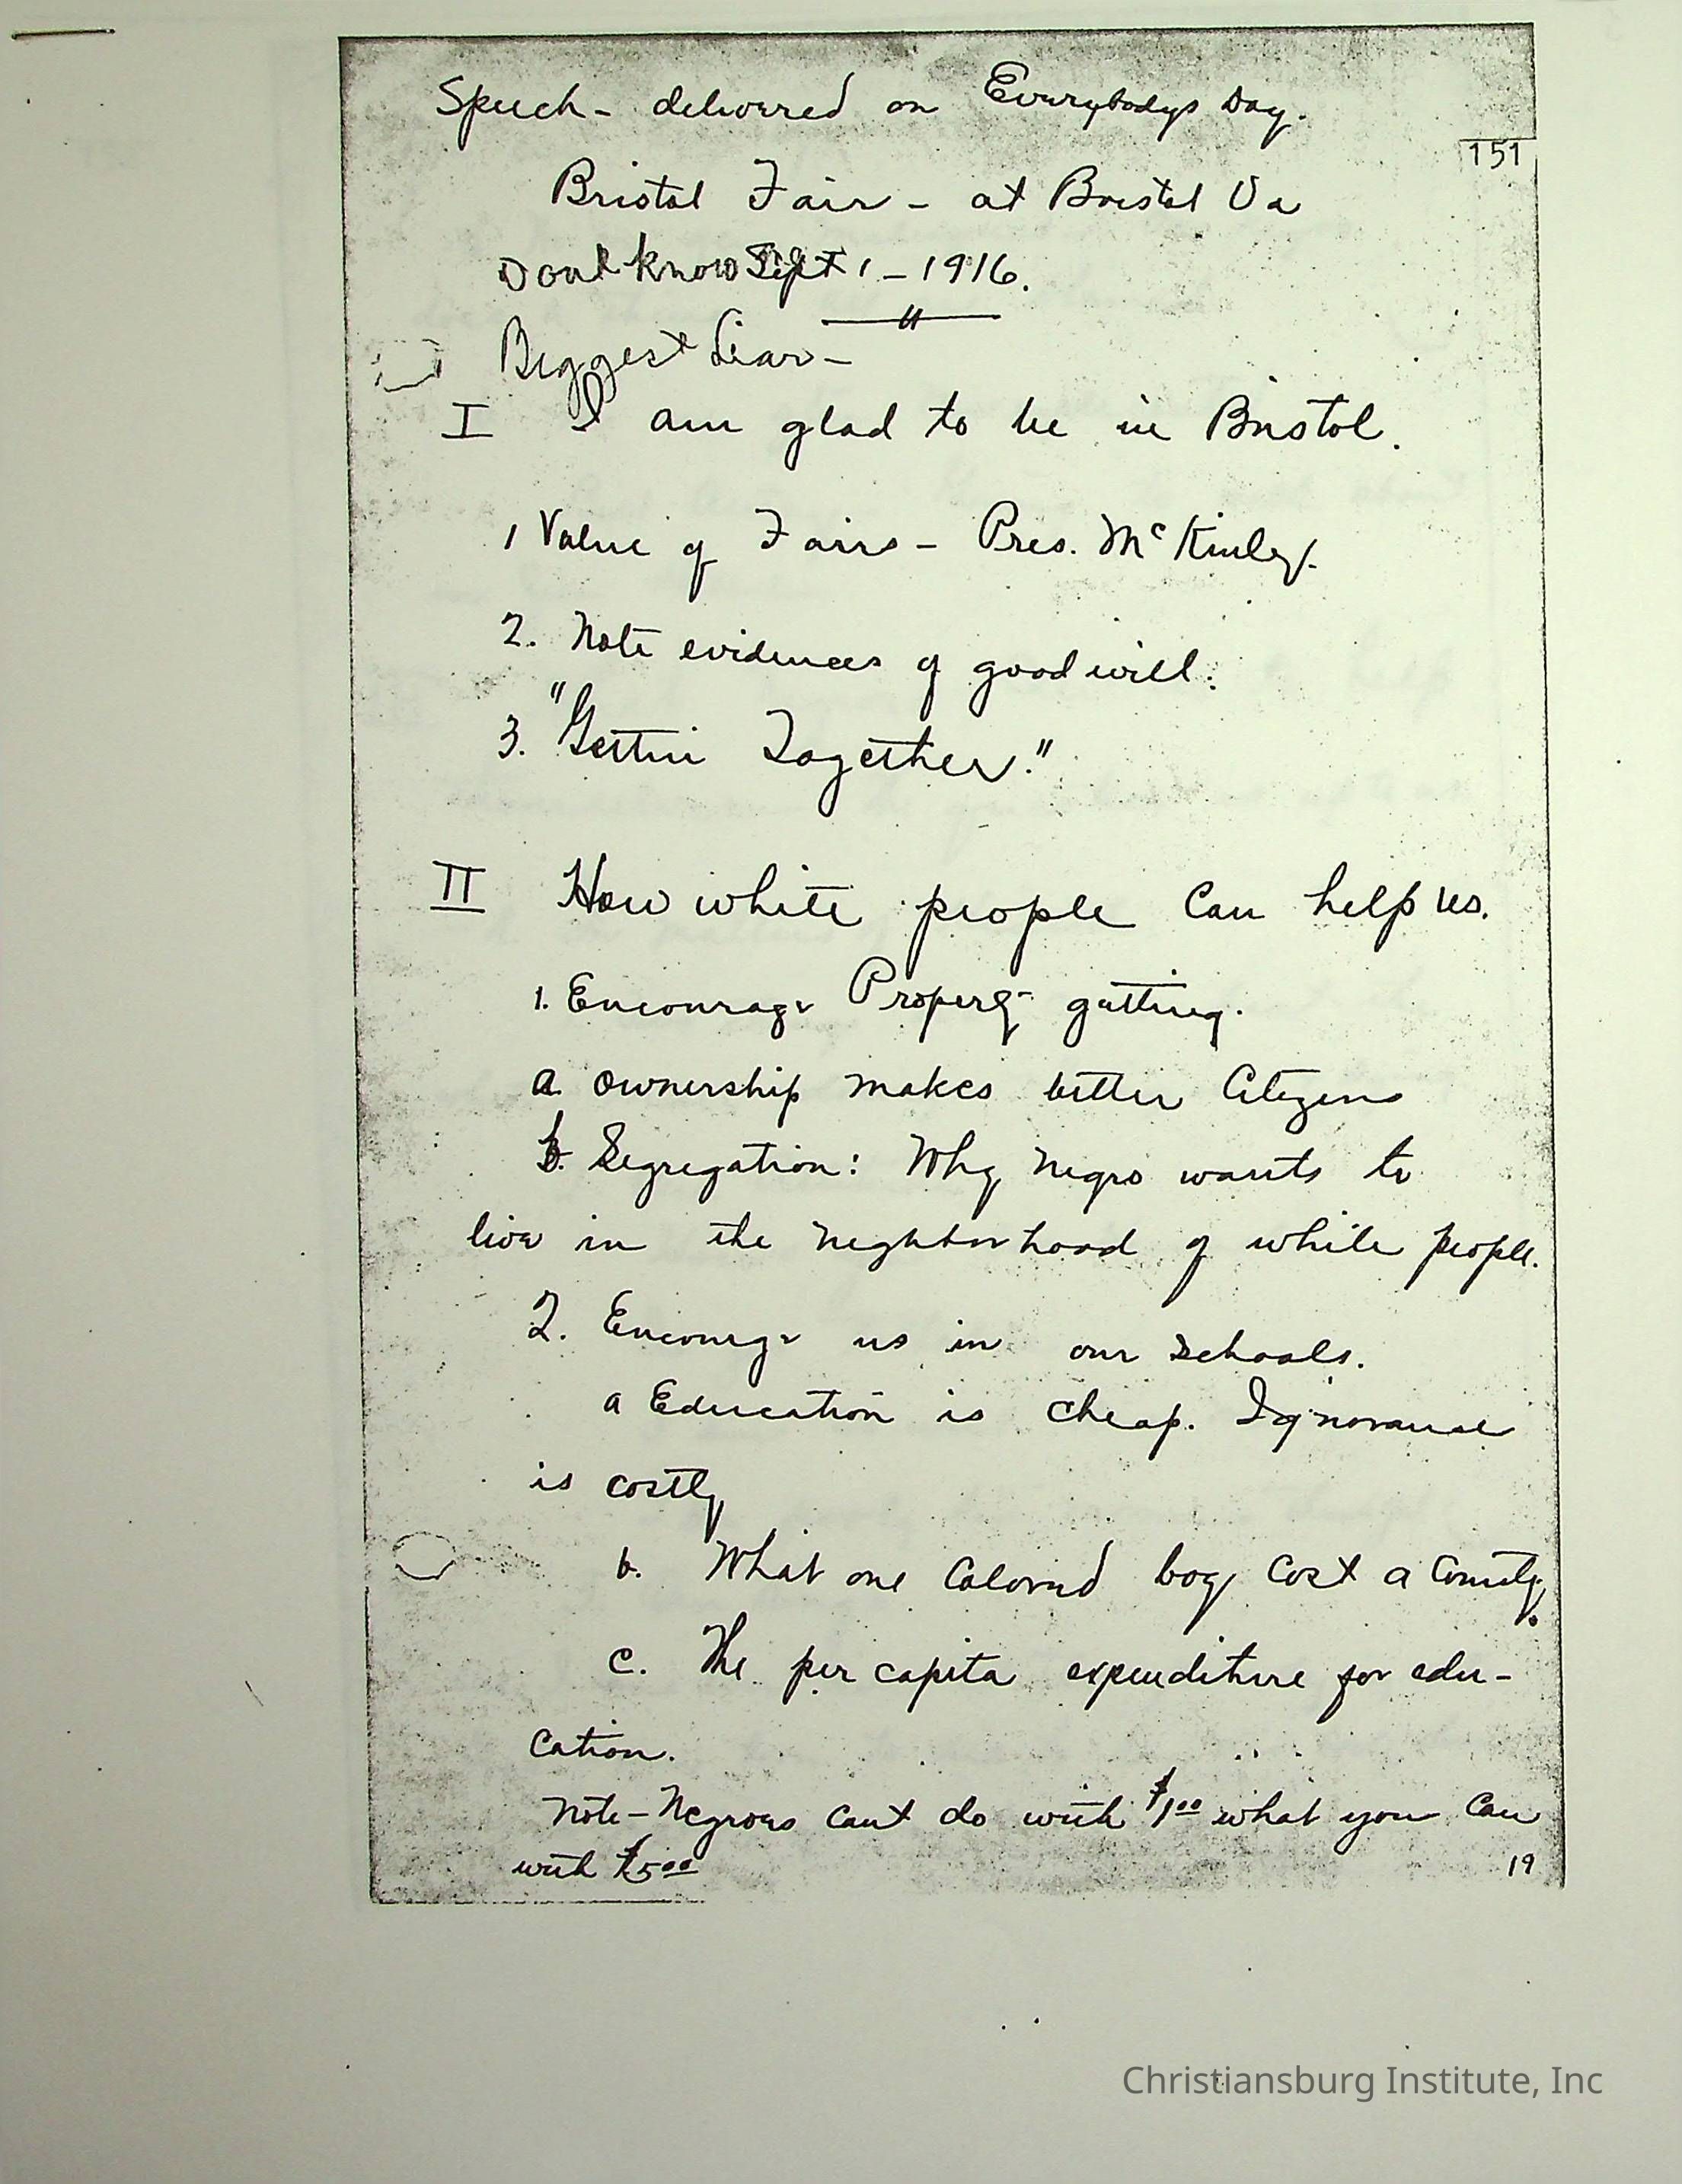 Speech - delivered on Everybodys Day.
151
Bristol Fair - at Bristol Va
Dont know Sept 1 - 1916.
Biggest Liar -
I I am glad to be in Bristol.
1 Value of Fairs - Pres. McKinley.
2. Note evidences of good will.
3. "Gettin Together."
II How white people can help us.
1. Encourage Property getting.
a. Ownership makes better Citizens
b. Segregation: Why Negro wants to
live in the neighborhood of white people.
2. Encourge us in our schools.
a Education is cheap. Ignorance
is costly
b. What one Colored boy cost a County.
c. The per capita expenditure for edu-
cation.
Note - Negroes cant do with $1.00 what you can
with $5.00
19
Christiansburg Institute, Inc